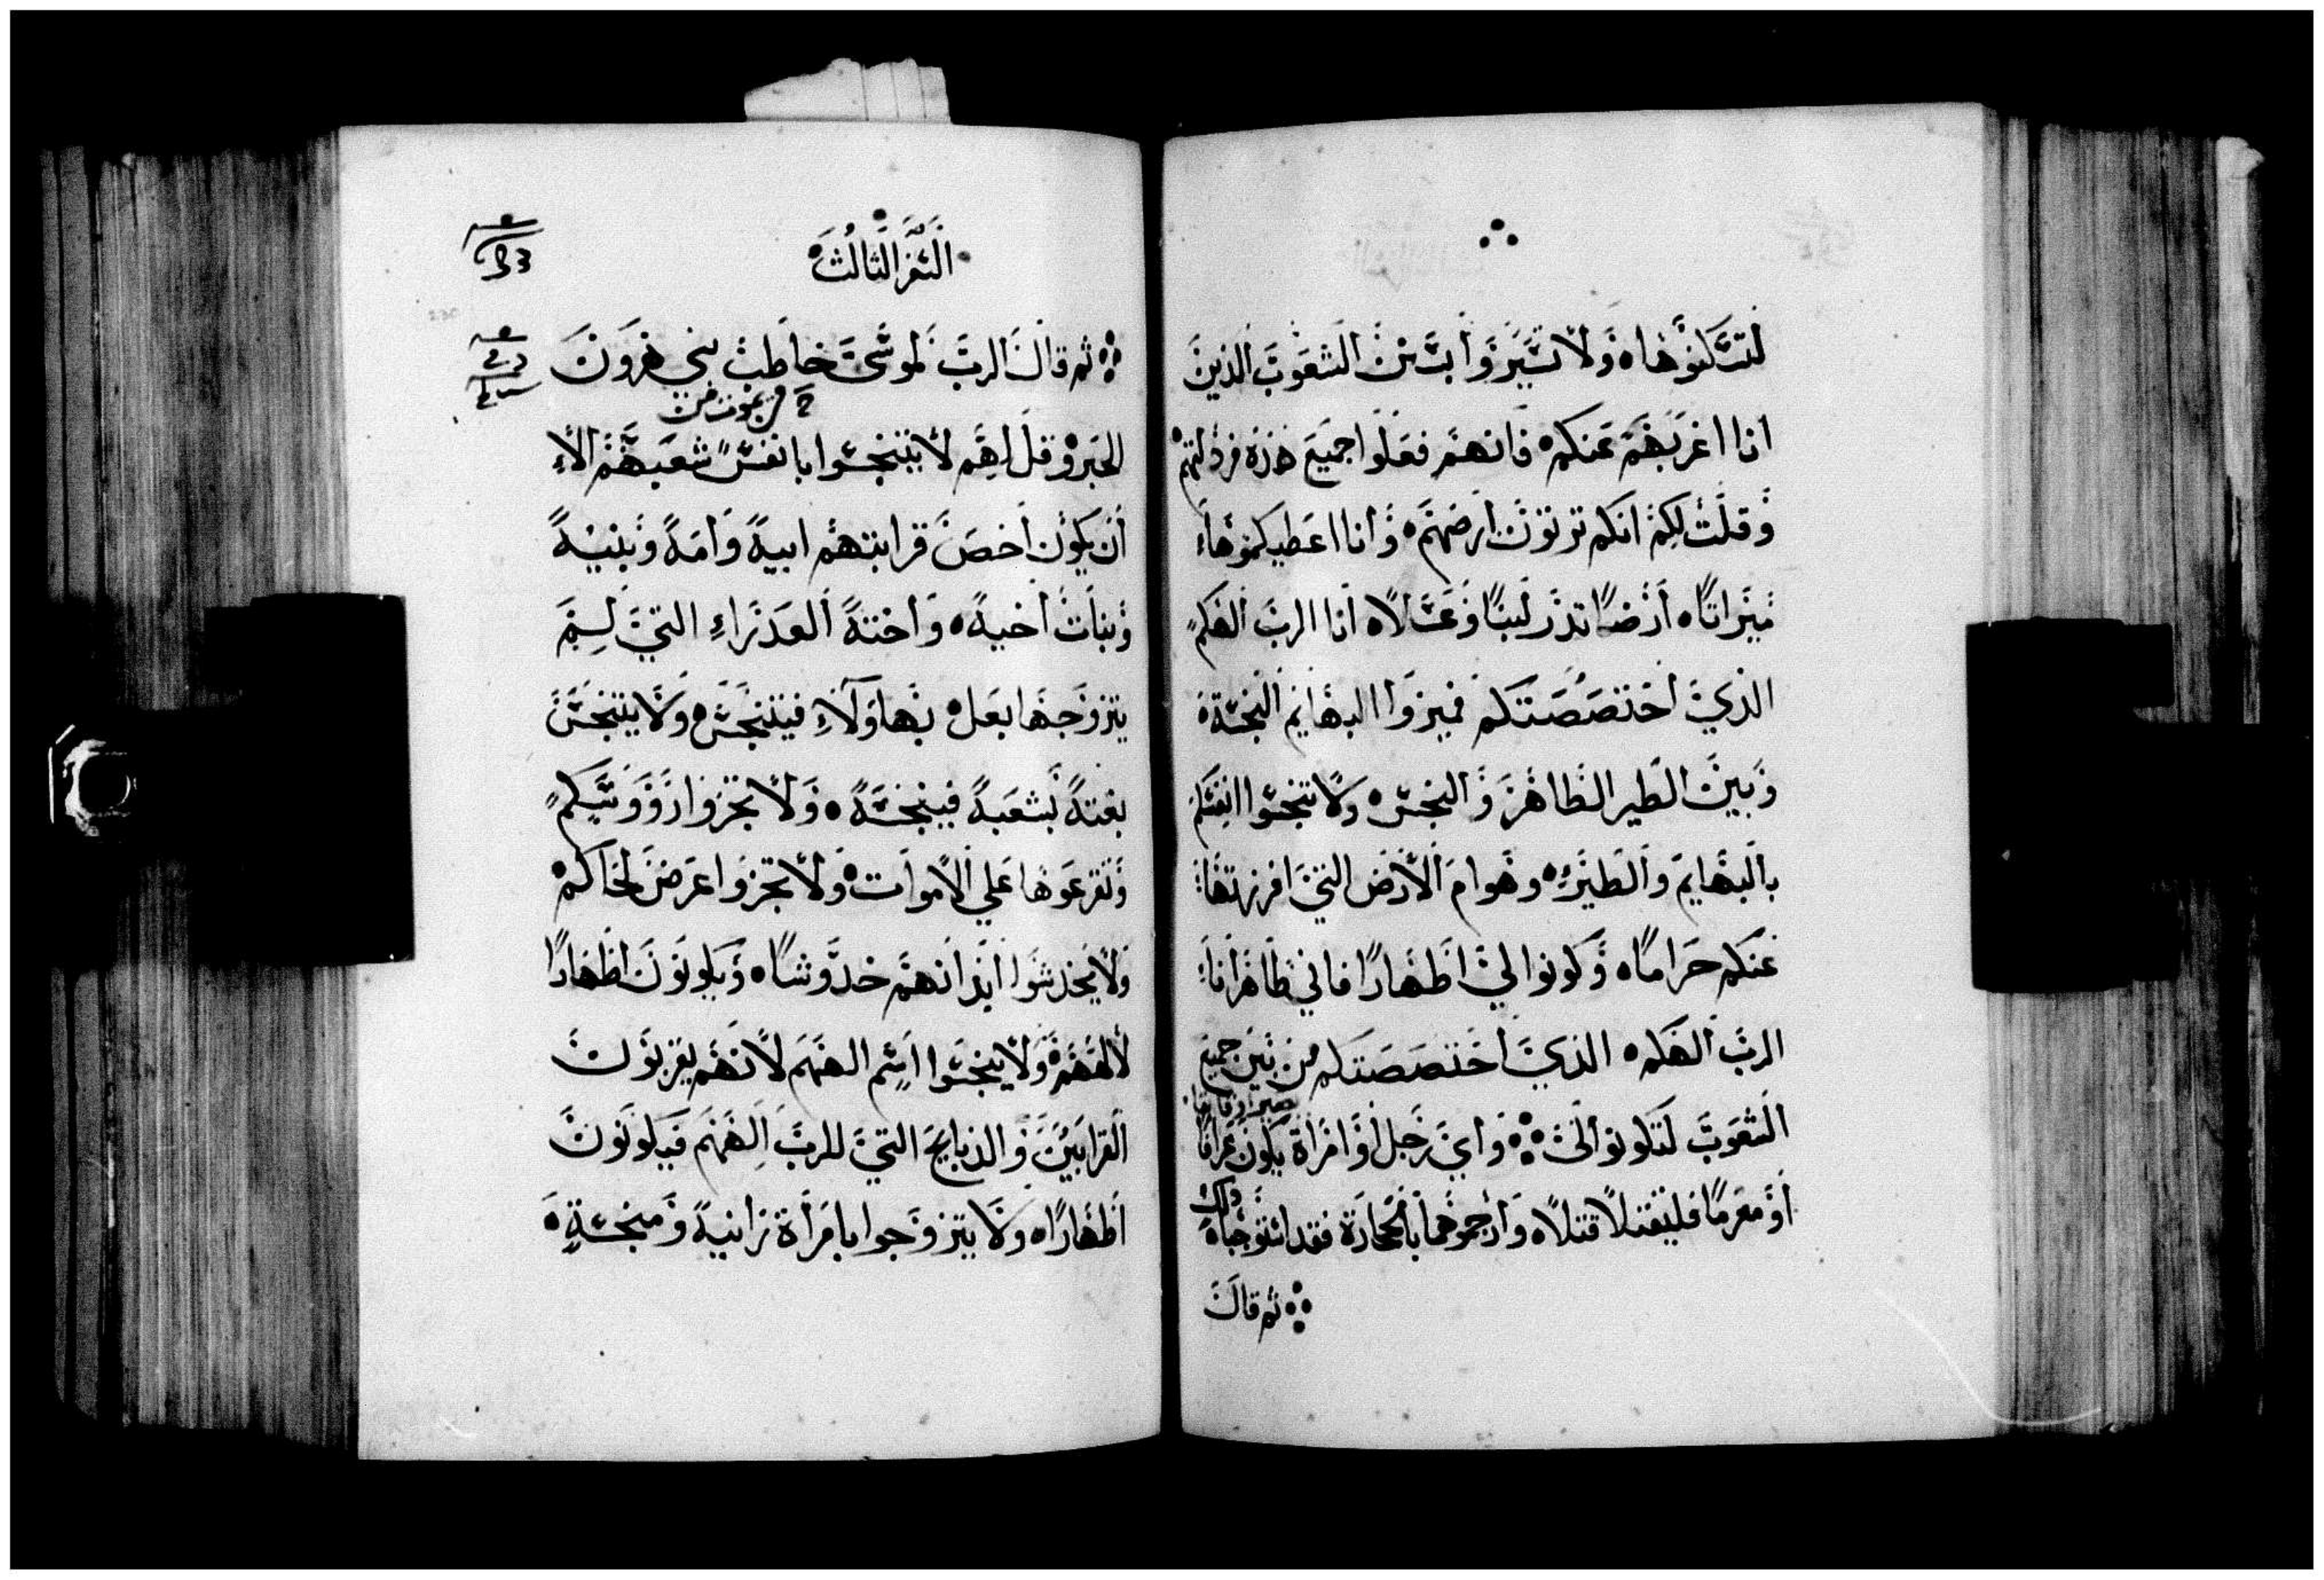 لتسكنوها ولا تسيروا بسنن الشعوب الذين
انا اغربهم عنكم فانهم فعلوا جميع هذه فرذلتهم
وقلت لكم انكم ترثون ارضهم وانا اعطيكموها
ميراثا ارضا تدر لبنا وعسلا انا الرب الهكم
الذي اختصصتكم فميزوا البهايم النجسة
وبين الطير الطاهر والنجس ولا تنجسوا انفسكم
بالبهايم والطير وهوام الارض التي افرزتها
عنكم حراما وكونوا لي اطهارا فاني طاهر انا
الرب الهكم الذي اختصصتكم من بين جميع
الشعوب لتكونوا لي واي رجل او امراة يكون عرافا
او مغرما فليقتلا قتلا وارجموهما بالحجارة فقد استوجبا
ذلك
ثم قال
السفر الثالث
ثم قال الرب لموسى خاطب بني هرون
من يموت من
الحبر وقل لهم لا يتنجسوا بانفس شعبهم الا
ان يكون اخص قرابتهم ابيه وامه وبنيه
وبنات اخيه واخته العذراء التي لم
يتزوجها بعل بهاولاء فيتنجس ولا يتنجس
بغتة بشعبه فينجسه ولا تجزوا رووسكم
وتقرعوها على الاموات ولا تجزوا عرض لحاكم
ولا يخدشوا ابدانهم خدوشا ويكونون اطهارا
لالههم ولا ينجسوا اسم الههم لانهم يقربون
القرابين والذبايح التي للرب الههم فيكونون
اطهارا ولا يتزوجوا بامراة زانية ومنجسة